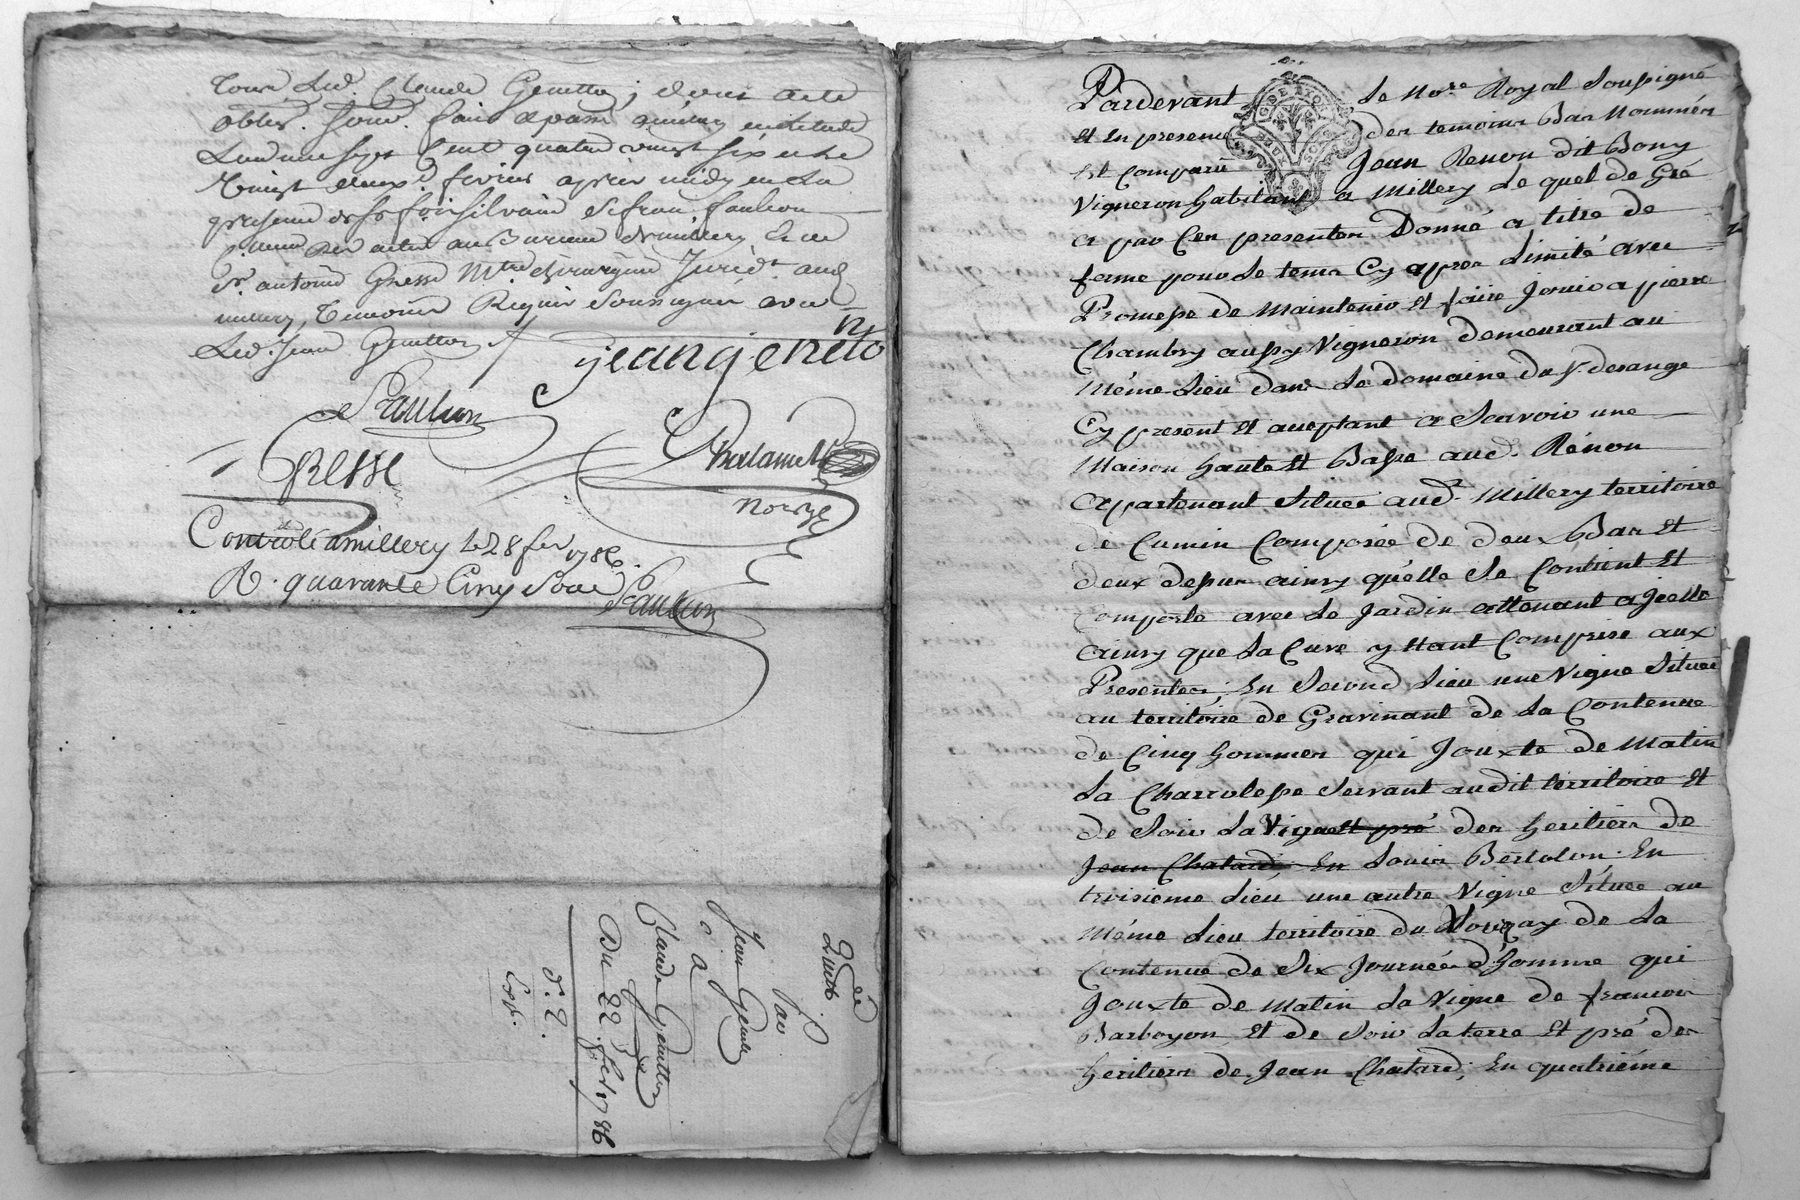 Led. Claude Genetton; dont acte
oblig. soum. fait & passé a millery en etude
Lan mil sept Cent quatre vingt six et le
vingt deux fevrier apres midy en la
presence de Sr françois silvain de frau. fauteon
des actes au Bureau de millery, & de
Sr. antoine Gresse Mtre chirurgien Jure dt. aud.
millery, Temoins Requis soussignés avec
Led. Jean Genetton
jean geneto
Gresse
Chatamet
nore Rl
Controlé a millery le 28 fer 1786.
R. quarante Cinq Sous
Quittce
par
Jean Genetton
a
Claude Genetton
Du 22 fer. 1786
d. 2.
Exp.
Pardevant le Nore Royal Soussigné
Et En presence des temoins Bas Nommés
Est comparu Jean Renon dit Bony
Vigneron habitant a Millery Le quel de Gré
a par Ces presentes Donné a titre de
ferme pour le tems Cy apres Limité avec
Promesse de Maintenir Et faire Jouir a pierre
Chambry aussy Vigneron demeurant au
Même Lieu dans Le domaine du Sr. desange
Cy present Et acceptant a Scavoir une
Maison haute Et Basse aud. Rénon
apartenant Située aud. Millery territoire
de Cumin Composée de deux Bas Et
deux dessus ainsy qu'elle Se Contient Et
Comporte avec Le Jardin attenant a Jcelle
ainsy que La Cuve y Etant Comprise aux
Presentes; En Second Lieu une Vigne Située
au territoire de Gravinant de La Contenue
de Cinq hommes qui Jouxte de Matin
La Charrolesse Servant audit territoire Et
de Soir La Vigne Et pré des heritiers de
Jean Chatard, En Louis Bertolon. En
troisieme Lieu une autre Vigne Située au
Même Lieu territoire du
Contenue de Six Journée d'homme qui
Jouxte de Matin La Vigne de francois
Barboyon Et de Soir La terre Et pré des
heritiers de Jean Chatard; En quatriéme